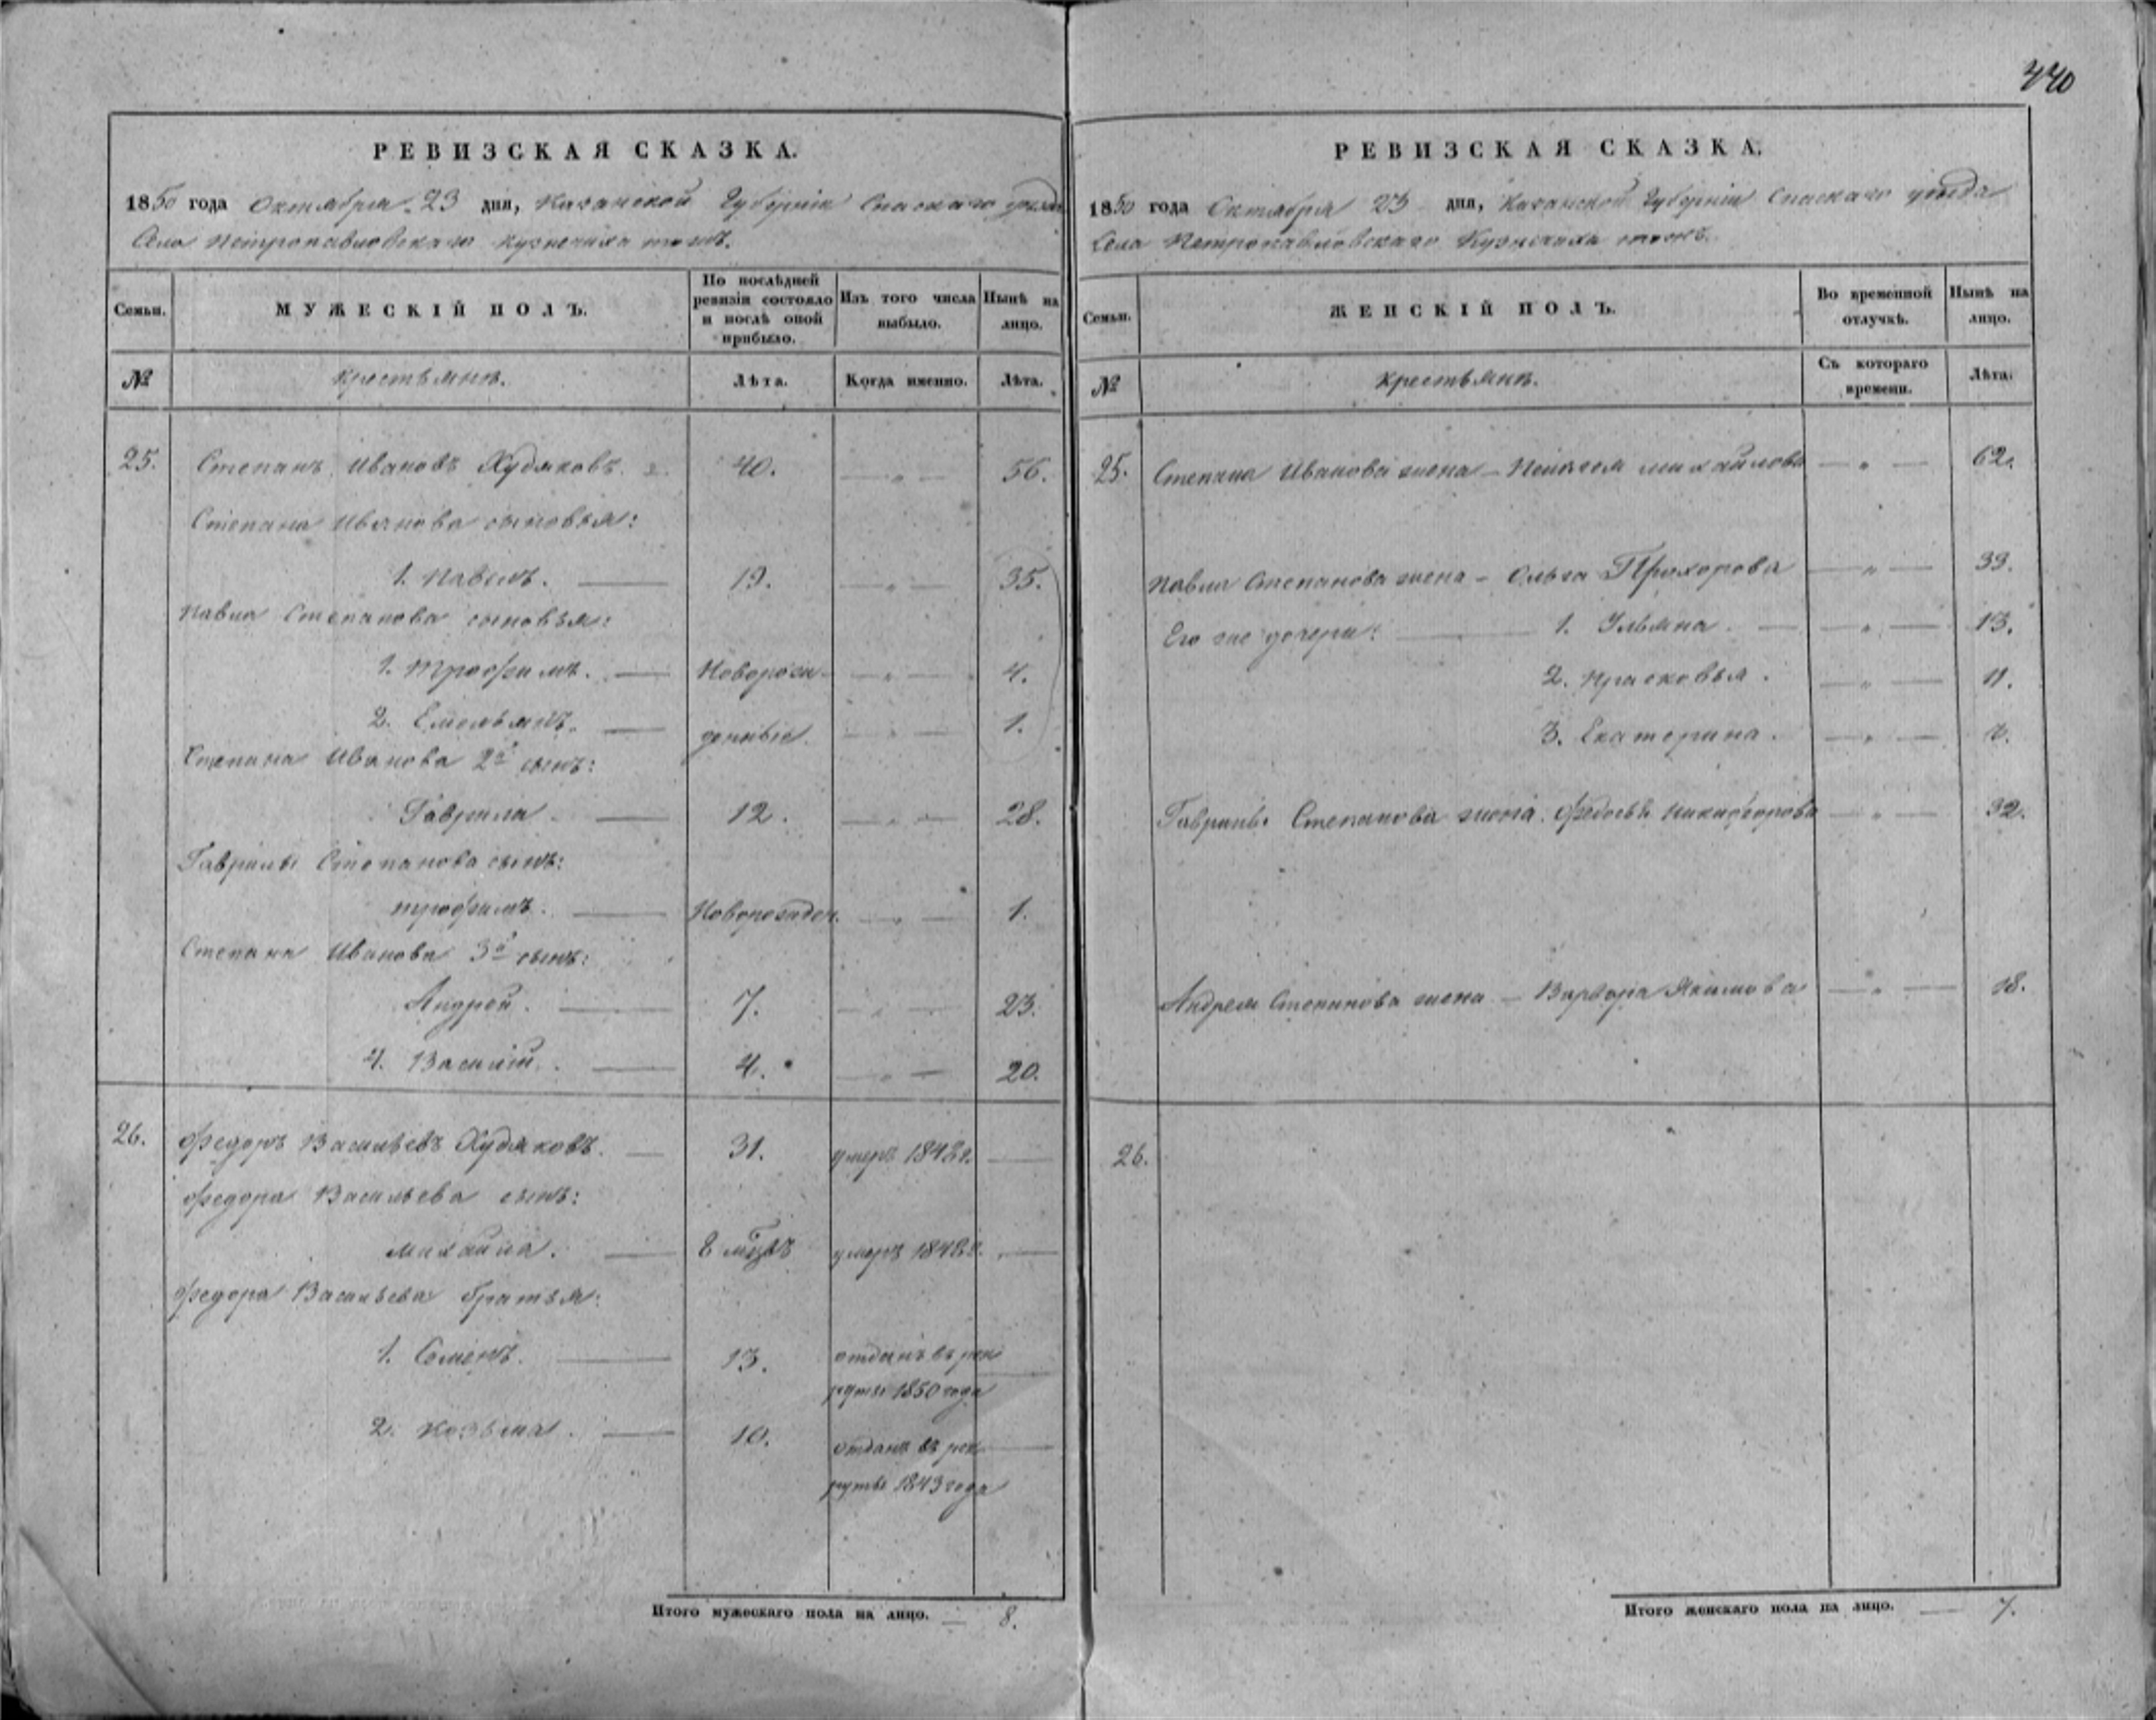 440
РЕВИЗСКАЯ СКАЗКА.
1850 года Октября 23 дня, Казанской Губерніи Спаскаго уѣзда
Села Петропавловскаго Кузнечиха тожъ.
Семьи. МУЖЕСКІЙ ПОЛЪ. По послѣдней ревизіи состояло и послѣ оной прибыло. Изъ того числа выбыло. Нынѣ на лицо.
№ Крестьяне. Лѣта. Когда именно. Лѣта.
25. Степанъ Ивановъ Худяковъ. 40. — „ — 56.
Степана Иванова сыновья:
1. Павелъ. — 19. — „ — 35.
Павла Степанова сыновья:
1. Трофимъ. — Новорож- — „ — 4.
2. Емельянъ. — денные. — „ — 1.
Степана Иванова 2й сынъ:
Гаврила — 12. — „ — 28.
Гаврилы Степанова сынъ:
Трофимъ. — Новорожден. — „ — 1.
Степана Иванова 3й сынъ:
Андрей. — 7. — „ — 23.
4. Василій. — 4. — „ — 20.
26. Федоръ Васильевъ Худяковъ. — 31. умеръ 1848г. —
Федора Васильева сынъ:
Михайла. — 8 мѣсцъ умеръ 1848г. —
Федора Васильева братья:
1. Семенъ. — 13. отданъ въ рек
руты 1850 года —
2. Козьма. — 10. отданъ въ рек
руты 1843 года —
Итого мужескаго пола на лицо. — 8.
РЕВИЗСКАЯ СКАЗКА.
1850 года Октября 23 дня, Казанской Губерніи Спаскаго уѣзда
Села Петропавловскаго Кузнечиха тожъ.
Семьи. ЖЕНСКІЙ ПОЛЪ. Во временной отлучкѣ. Нынѣ на лицо.
№ Крестьяне. Съ котораго времени. Лѣта.
25. Степана Иванова жена — Михайлова — „ — 62.
Павла Степанова жена — Ольга Прохорова — „ — 39.
Его же дочери: — 1. Ульяна. — — „ — 13.
2. Прасковья. — „ — 11.
3. Екатерина. — „ —
Гаврилы Степанова жена. Федосья Никифорова — „ — 32.
Андрея Степанова жена — Варвара Якимова — „ — 18.
26.
Итого женскаго пола на лицо. — 7.